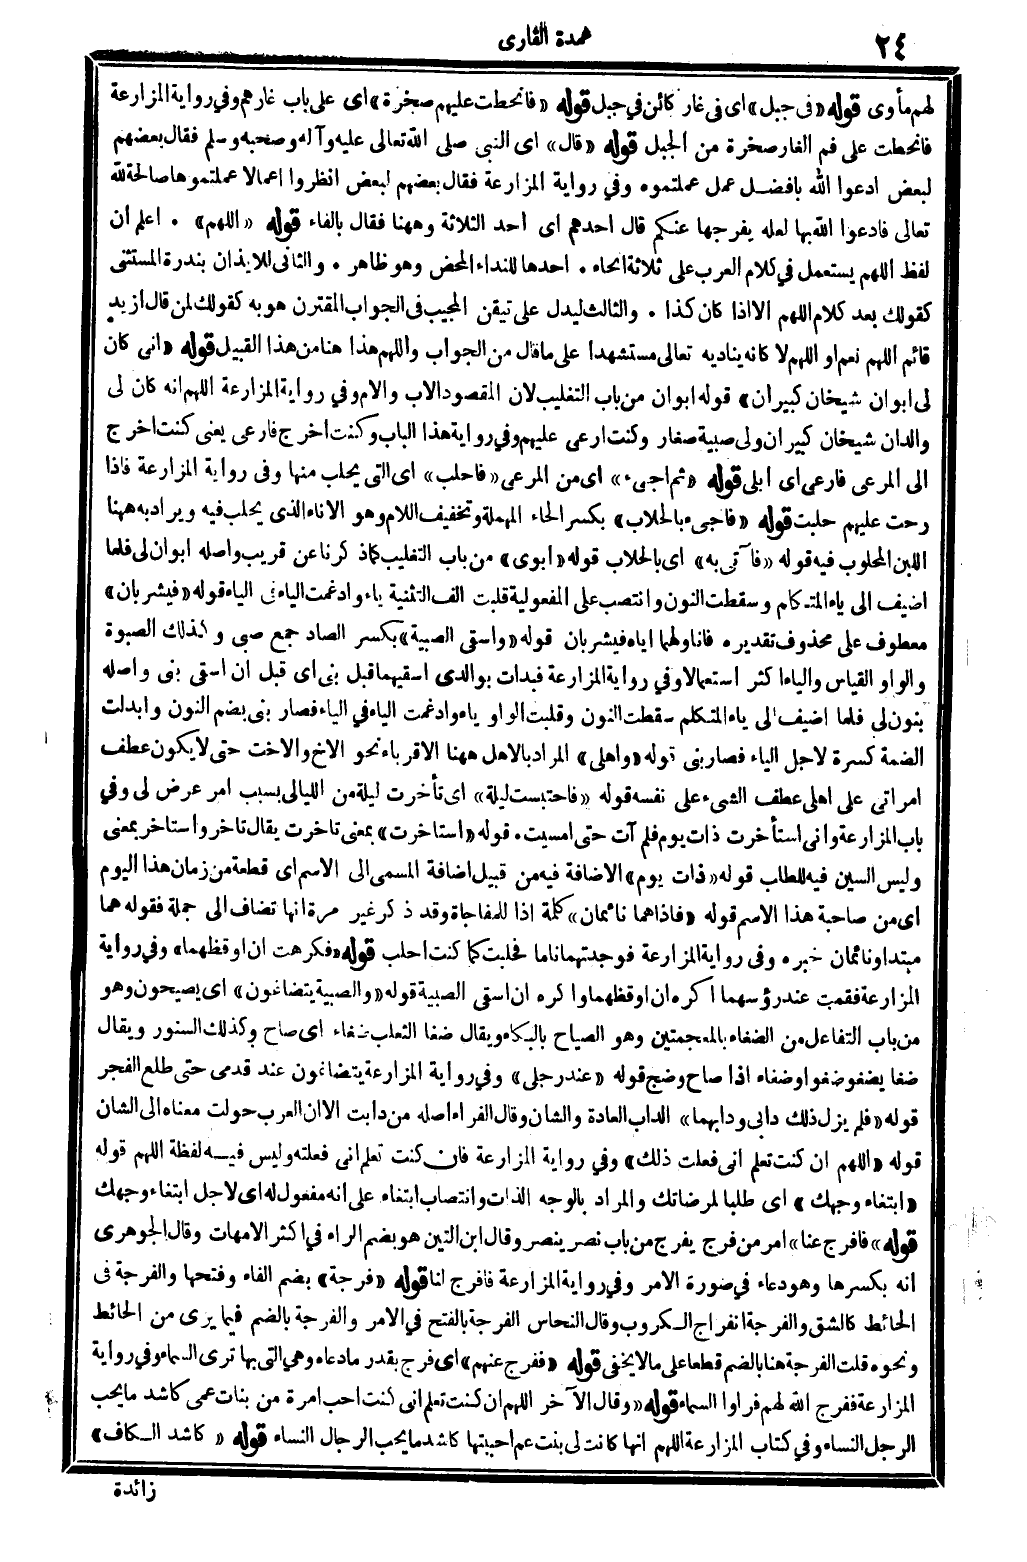 ٢٤
عمدة القارى
لهم مأوى قوله «فى جبل» اى فى غار كائن فى جبل قوله «فانحطت عليهم صخرة» اى على باب غارهم وفي رواية المزارعة
فانحطت على فم الغار صخرة من الجبل قوله «قال» اى النبى صلى الله تعالى عليه وآله وصحبه وسلم فقال بعضهم
لبعض ادعوا الله بافضل عمل عملتموه وفي رواية المزارعة فقال بعضهم لبعض انظروا اعمالا عملتموها صالحة لله
تعالى فادعوا الله بها لعله يفرجها عنكم قال احدهم اى احد الثلاثة وههنا فقال بالفاء قوله «اللهم» . اعلم ان
لفظ اللهم يستعمل في كلام العرب على ثلاثة انحاء . احدها للنداء المحض وهو ظاهر . والثانى للايذان بندرة المستثنى
كقولك بعد كلام اللهم الا اذا كان كذا . والثالث ليدل على تيقن المجيب فى الجواب المقترن هو به كقولك لمن قال ازيد
قائم اللهم نعم او اللهم لا كانه يناديه تعالى مستشهدا على ما قال من الجواب واللهم هذا هنا من هذا القبيل قوله «انى كان
لى ابوان شيخان كبيران» قوله ابوان من باب التغليب لان المقصود الاب والام وفي رواية المزارعة اللهم انه كان لى
والدان شيخان كبيران ولى صبية صغار وكنت ارعى عليهم وفي رواية هذا الباب وكنت اخرج فارعى يعنى كنت اخرج
الى المرعى فارعى اى ابلى قوله «ثم اجىء» اى من المرعى «فاحلب» اى التى يحلب منها وفى رواية المزارعة فاذا
رحت عليهم حلبت قوله «فاجىء بالحلاب» بكسر الحاء المهملة وتخفيف اللام وهو الاناء الذى يحلب فيه ويراد به ههنا
اللبن المحلوب فيه قوله «فآتى به» اى بالحلاب قوله «ابوى» من باب التغليب كما ذكرنا عن قريب واصله ابوان لى فلما
اضيف الى ياء المتكلم وسقطت النون وانتصب على المفعولية قلبت الف التثنية ياء وادغمت الياء فى الياء قوله «فيشربان»
معطوف على محذوف تقديره فاناولهما اياه فيشربان قوله «واسقى الصبية» بكسر الصاد جمع صبى وكذلك الصبوة
والواو القياس والياء اكثر استعمالا وفي رواية المزارعة فبدات بوالدى اسقيهما قبل بنى اى قبل ان اسقى بنى واصله
بنون لى فلما اضيف الى ياء المتكلم سقطت النون وقلبت الواو ياء وادغمت الياء في الياء فصار بنى بضم النون وابدلت
الضمة كسرة لاجل الياء فصار بنى قوله «واهلى» المراد بالاهل ههنا الاقرباء نحو الاخ والاخت حتى لا يكون عطف
امراتى على اهلى عطف الشىء على نفسه قوله «فاحتبست ليلة» اى تأخرت ليلة من الليالى بسبب امر عرض لى وفي
باب المزارعة وانى استأخرت ذات يوم فلم آت حتى امسيت . قوله «استاخرت» بمعنى تاخرت يقال تاخر واستاخر بمعنى
وليس السين فيه للطلب قوله «ذات يوم» الاضافة فيه من قبيل اضافة المسمى الى الاسم اى قطعة من زمان هذا اليوم
اى من صاحبة هذا الاسم قوله «فاذا هما نائمان» كلمة اذا للمفاجاة وقد ذكر غير مرة انها تضاف الى جملة فقوله هما
مبتدا ونائمان خبره وفى رواية المزارعة فوجدتهما ناما فحلبت كما كنت احلب قوله «فكرهت ان اوقظهما» وفي رواية
المزارعة فقمت عند رؤسهما اكره ان اوقظهما واكره ان اسقى الصبية قوله «والصبية يتضاغون» اى يصيحون وهو
من باب التفاعل من الضغاء بالمعجمتين وهو الصياح بالبكاء ويقال ضغا الثعلب ضغاء اى صاح وكذلك السنور ويقال
ضغا يضغو ضغوا وضغاء اذا صاح وضج قوله «عند رجلى» وفي رواية المزارعة يتضاغون عند قدمى حتى طلع الفجر
قوله «فلم يزل ذلك دابى ودابهما» الداب العادة والشان وقال الفراء اصله من دابت الا ان العرب حولت معناه الى الشان
قوله «اللهم ان كنت تعلم انى فعلت ذلك» وفي رواية المزارعة فان كنت تعلم انى فعلته وليس فيه لفظة اللهم قوله
«ابتغاء وجهك» اى طلبا لمرضاتك والمراد بالوجه الذات وانتصاب ابتغاء على انه مفعول له اى لاجل ابتغاء وجهك
قوله «فافرج عنا» امر من فرج يفرج من باب نصر ينصر وقال ابن التين هو بضم الراء في اكثر الامهات وقال الجوهرى
انه بكسرها وهو دعاء في صورة الامر وفي رواية المزارعة فافرج لنا قوله «فرجة» بضم الفاء وفتحها والفرجة فى
الحائط كالشق والفرجة انفراج الكروب وقال النحاس الفرجة بالفتح في الامر والفرجة بالضم فيما يرى من الحائط
ونحوه قلت الفرجة هنا بالضم قطعا على ما لا يخفى قوله «ففرج عنهم» اى فرج بقدر ما دعاه وهي التى بها ترى السماء وفي رواية
المزارعة ففرج الله لهم فراوا السماء قوله «وقال الآخر اللهم ان كنت تعلم انى كنت احب امرة من بنات عمى كاشد ما يحب
الرجل النساء وفي كتاب المزارعة اللهم انها كانت لى بنت عم احببتها كاشد ما يحب الرجال النساء قوله «كاشد الكاف»
زائدة